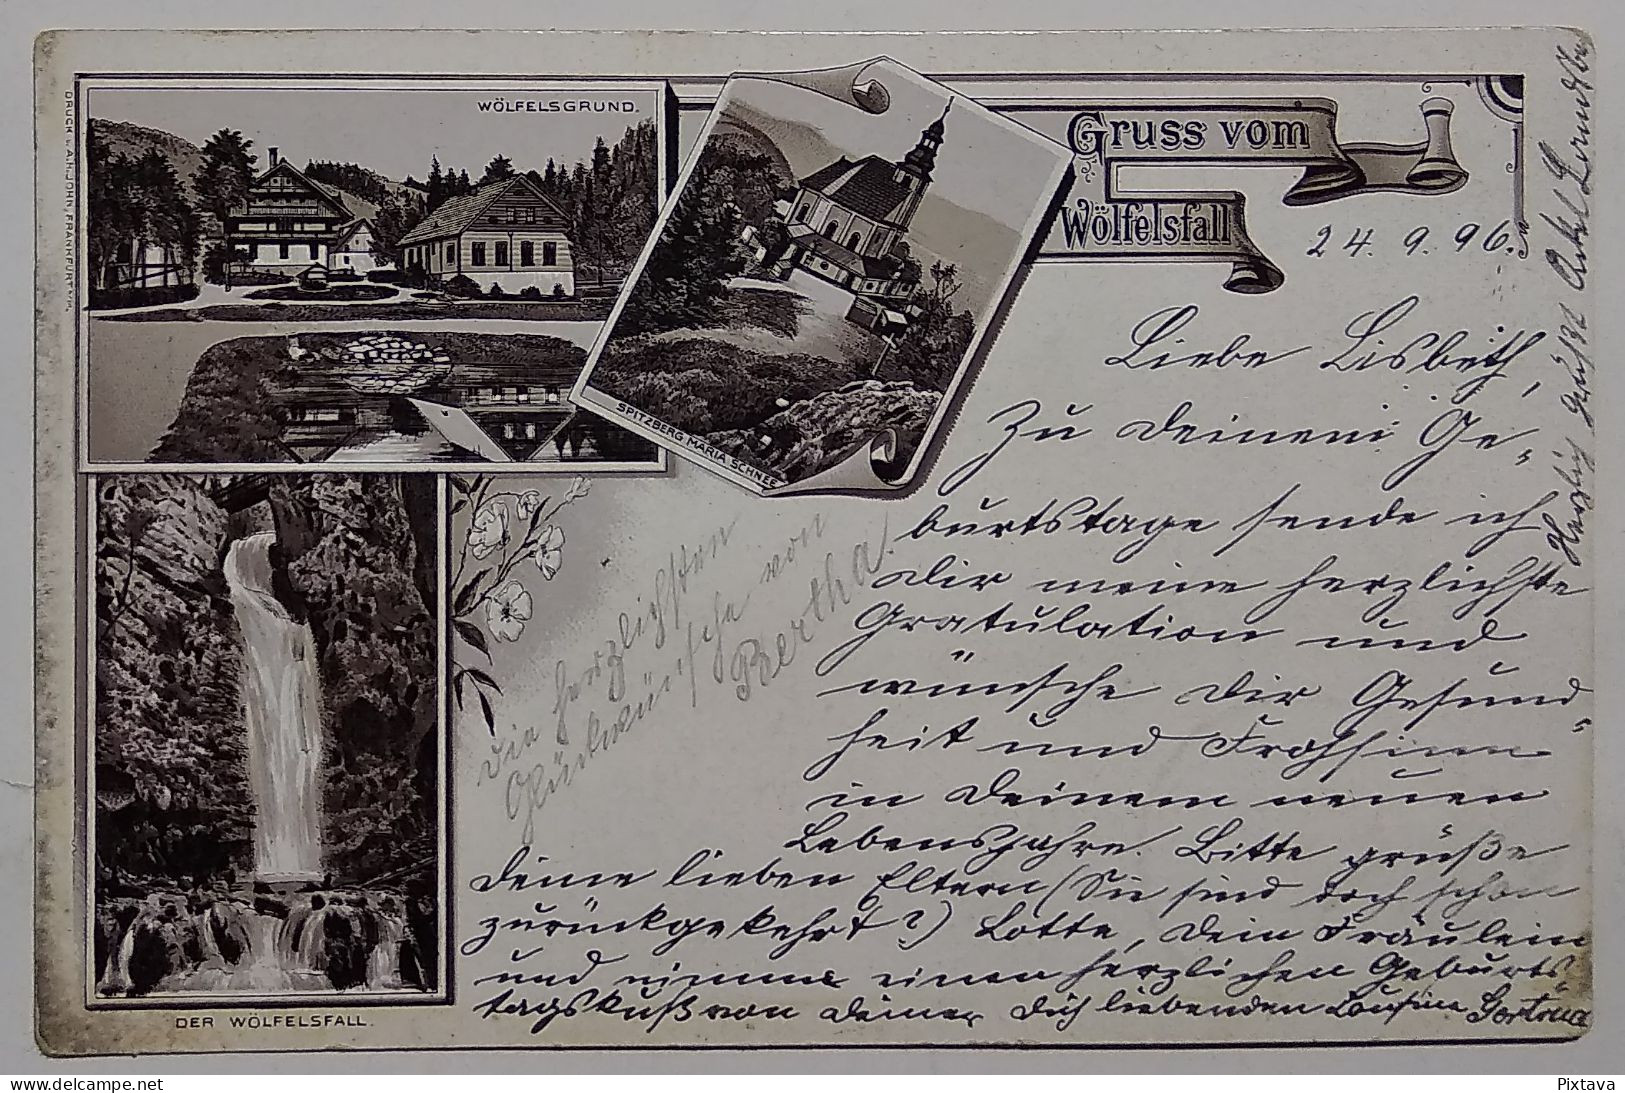 WÖLFELSGRUND.
DRUCK v. A.H. JOHN, FRANKFURT a/M.
SPITZBERG MARIA SCHNEE
DER WÖLFELSFALL.
Gruss vom
Wölfelsfall
24.9.96.
Liebe Lisbeth,
Zu Deinem Ge-
burtstage sende ich
Dir meine herzlichste
Gratulation und
wünsche Dir Gesund-
heit und Frohsinn
in Deinem neuen
Lebensjahre. Bitte grüße
Deine lieben Eltern (Sie sind doch schon
zurückgekehrt?) Lotte, Dein Fräulein
und nimm einen herzlichen Geburts-
tagskuß von Deiner Dich liebenden Cousine
Die herzlichsten
Glückwünsche von
Bertha.
Onkel
delcampe.net
Pixtava